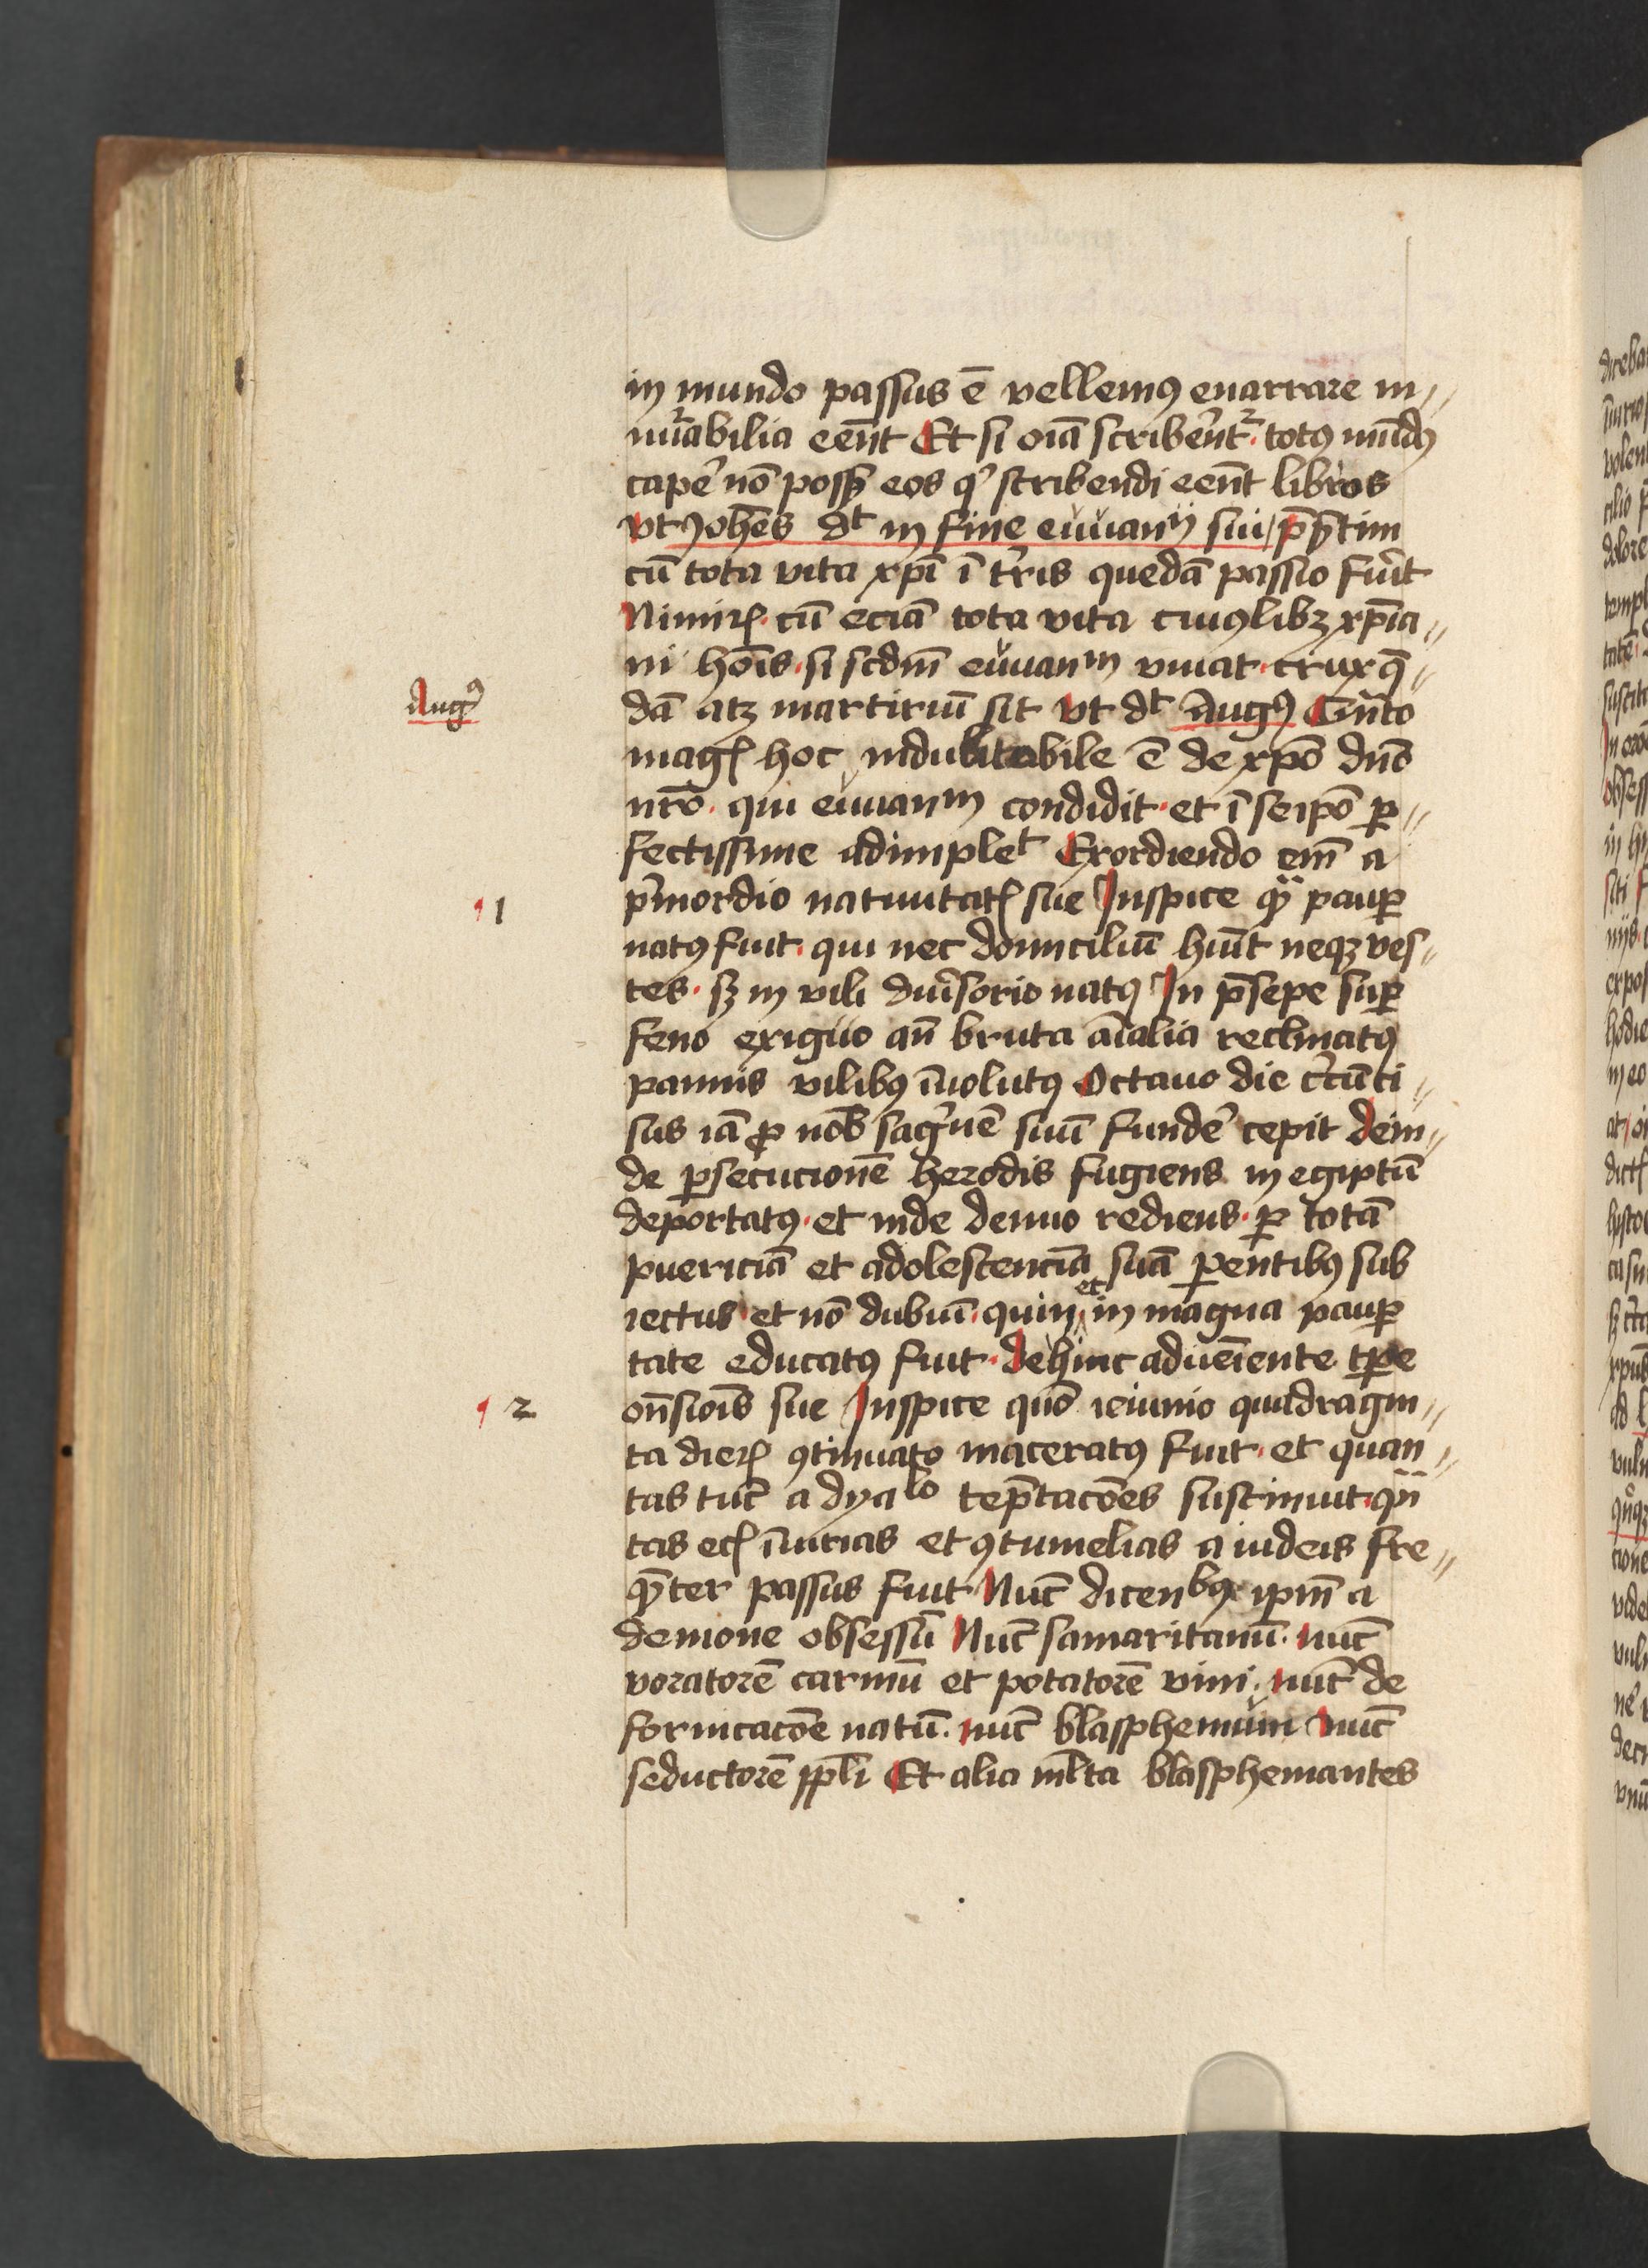 in mundo passus ē vellemꝯ enarrare in〃
nūabilia eēnt Et si oīa scribēnt᷑ · totꝯ mūdꝯ
capē nō poss̄ eos qͥ scribendi eēnt libros
vt Johēs dt in fine euuanij sui / p̄s̄tim
cū tota vita xp̄i ī t̄ris quedā passio fūit
Nimiꝝ · cū eciā tota vita cuiuslibꝫ xp̄ia〃
ni hoīs · si scdm̄ euuanm viuat · crux q̄〃
Augꝯ
dā atꝫ martiriū sit vt dt Augꝯ Qn̄to
magꝭ hoc indubitabile ē de xp̄o dn̄o
nr̄o · qui euuanm condidit · et ī seip̄o ꝑ〃
fectissime adimplet Exordiendo em̄ a
1
p̄mordio natiuitatꝭ sue Inspice qͣ paupꝑ
natꝯ fuit · qui nec domiciliū hūit neqꝫ ves〃
tes · sꝫ in vili diuͥsorio natꝯ In p̄sepe suꝑ
feno exiguo an̄ bruta aīalia reclinatꝯ
pannis vilibꝯ īuolutꝯ Octauo die c̄cūci〃
sus iā ꝓ nob̄ sāgnē suū fundē cepit dein〃
de ꝑsecucionē herodis fugiens in egiptū
deportatꝯ · et inde denuo rediens · ꝑ totā
puericiā et adolescenciā suā ꝑentibꝯ sub
iectus · et nō dubiū · quin et in magna pauꝑ
tate educatꝯ fuit · dehinc adueīente tꝑe
2
on̄sioīs sue Inspice quō ieiunio quadragin〃
ta dieꝝ ꝯtinuato maceratꝯ fuit · et quan〃
tas tūc a dyalo tēptacōes sustinuit · qͣn
tas ecꝭ īiurias et ꝯtumelias a iudeis fre〃
q̄ter passus fuit Nūc dicenbꝯ ip̄m a
demone obsessū Nūc samaritanū · nūc
voratorē carniū et potatorē vini · nūc de
fornicacōe natū · nūc blasphemum Nūc
seductorē pp̄li Et alia ml̄ta blasphemantes